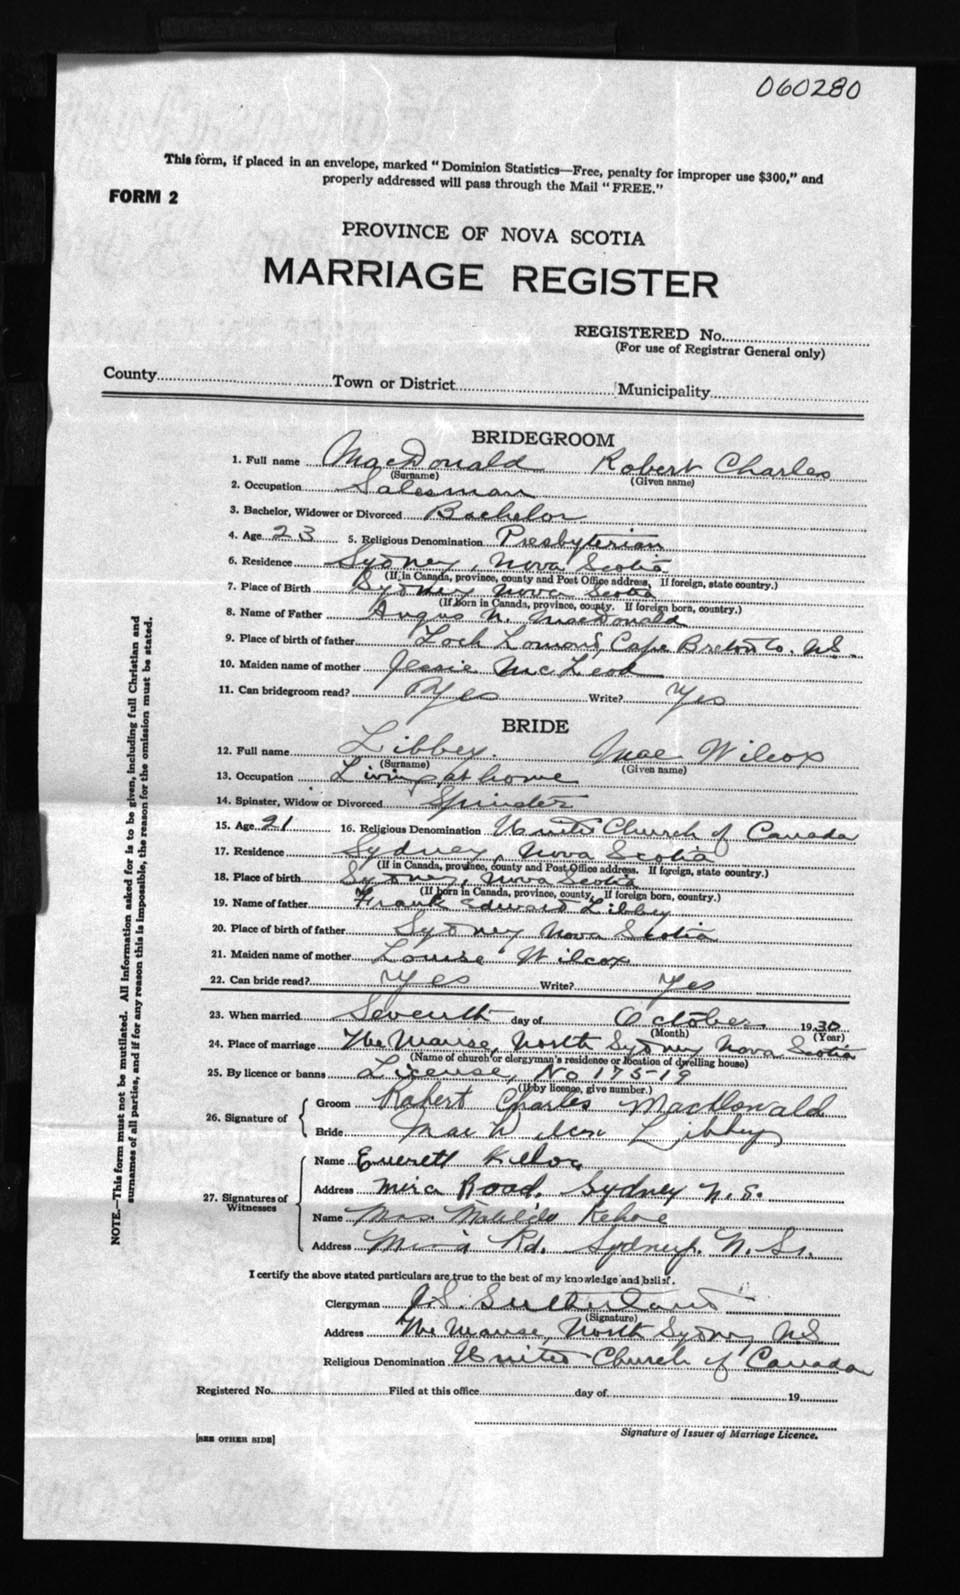 060280
This form, if placed in an envelope, marked "Dominion Statistics—Free, penalty for improper use $300," and
properly addressed will pass through the Mail "FREE."
FORM 2
PROVINCE OF NOVA SCOTIA
MARRIAGE REGISTER
REGISTERED No.
(For use of Registrar General only)
County Town or District Municipality
BRIDEGROOM
1. Full name MacDonald Robert Charles
(Surname) (Given name)
2. Occupation Salesman
3. Bachelor, Widower or Divorced Bachelor
4. Age 23 5. Religious Denomination Presbyterian
6. Residence Sydney, Nova Scotia
(If in Canada, province, county and Post Office address, If foreign, state country.)
7. Place of Birth Sydney Nova Scotia
(If born in Canada, province, county. If foreign born, country.)
8. Name of Father Angus N. MacDonald
9. Place of birth of father Loch Lomond, Cape Breton Co. N.S.
10. Maiden name of mother Jessie McLeod
11. Can bridegroom read? Yes Write? Yes
BRIDE
12. Full name Libbey. Mae Wilcox
(Surname) (Given name)
13. Occupation Living at home
14. Spinster, Widow or Divorced Spinster
15. Age 21 16. Religious Denomination United Church of Canada
17. Residence Sydney, Nova Scotia
(If in Canada, province, county and Post Office address. If foreign, state country.)
18. Place of birth Sydney, Nova Scotia
(If born in Canada, province, county. If foreign born, country.)
19. Name of father Frank Edward Libbey
20. Place of birth of father Sydney Nova Scotia
21. Maiden name of mother Louise Wilcox
22. Can bride read? Yes Write? Yes
23. When married Seventh day of October 1930
(Month) (Year)
24. Place of marriage The Manse, North Sydney Nova Scotia
(Name of church or clergyman's residence or location of dwelling house)
25. By licence or banns License, No 175-19
(If by licence, give number.)
26. Signature of Groom Robert Charles MacDonald
Bride Mae Libbey
27. Signatures of Witnesses
Name Everett
Address Mira Road, Sydney N.S.
Name Mrs Matilda Kehoe
Address Mira Rd. Sydney. N.S.
I certify the above stated particulars are true to the best of my knowledge and belief.
Clergyman J.S. Sutherland
(Signature)
Address The Manse, North Sydney N.S
Religious Denomination United Church of Canada
Registered No. Filed at this office day of 19
Signature of Issuer of Marriage Licence.
[SEE OTHER SIDE]
NOTE.—This form must not be mutilated. All information asked for is to be given, including full Christian and
surnames of all parties, and if for any reason this is impossible, the reason for the omission must be stated.